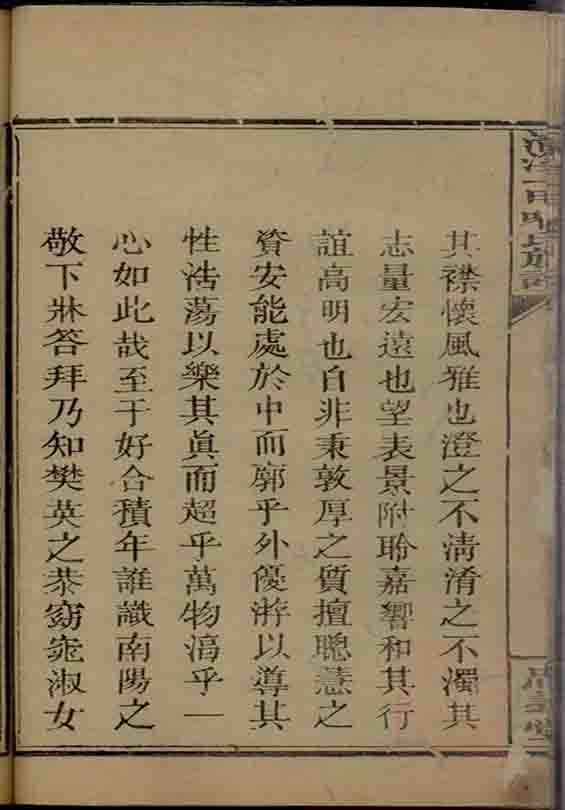 其襟懷風雅也澄之不淸淆之不濁其
志量宏遠也望表景附聆嘉響和其行
誼高明也自非秉敦厚之質擅聰慧之
資安能處於中而廓乎外優游以導其
性浩蕩以樂其眞而超乎萬物滈乎一
心如此哉至于好合積年誰識南陽之
敬下牀答拜乃知樊英之恭窈窕淑女